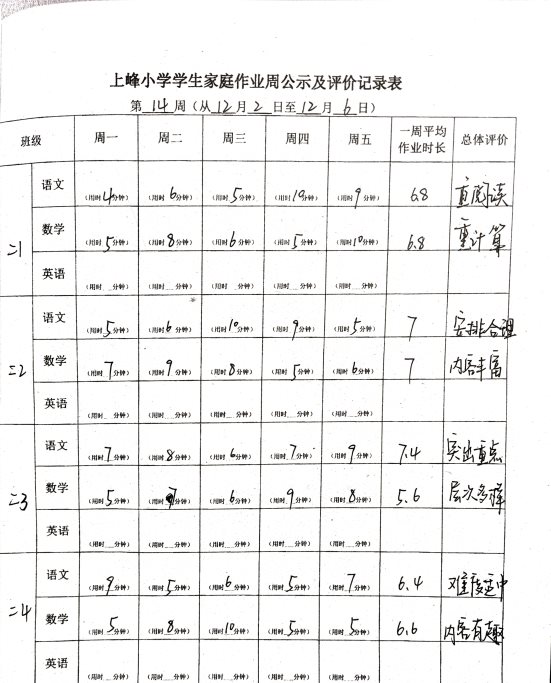 上峰小学学生家庭作业周公示及评价记录表
第 14 周（从 12 月 2 日至 12 月 6 日）
班级 周一 周二 周三 周四 周五 一周平均作业时长 总体评价
二1
语文 （用时 4 分钟） （用时 6 分钟） （用时 5 分钟） （用时 10 分钟） （用时 9 分钟） 6.8 重阅读
数学 （用时 5 分钟） （用时 8 分钟） （用时 6 分钟） （用时 5 分钟） （用时 10 分钟） 6.8 重计算
英语 （用时 分钟） （用时 分钟） （用时 分钟） （用时 分钟） （用时 分钟）
二2
语文 （用时 5 分钟） （用时 6 分钟） （用时 10 分钟） （用时 9 分钟） （用时 5 分钟） 7 安排合理
数学 （用时 7 分钟） （用时 9 分钟） （用时 8 分钟） （用时 5 分钟） （用时 6 分钟） 7 内容丰富
英语 （用时 分钟） （用时 分钟） （用时 分钟） （用时 分钟） （用时 分钟）
二3
语文 （用时 7 分钟） （用时 8 分钟） （用时 6 分钟） （用时 7 分钟） （用时 9 分钟） 7.4 突出重点
数学 （用时 5 分钟） （用时 7 分钟） （用时 6 分钟） （用时 9 分钟） （用时 8 分钟） 5.6 层次多样
英语 （用时 分钟） （用时 分钟） （用时 分钟） （用时 分钟） （用时 分钟）
二4
语文 （用时 9 分钟） （用时 5 分钟） （用时 6 分钟） （用时 5 分钟） （用时 7 分钟） 6.4 难度适中
数学 （用时 5 分钟） （用时 8 分钟） （用时 10 分钟） （用时 5 分钟） （用时 5 分钟） 6.6 内容有趣
英语 （用时 分钟） （用时 分钟） （用时 分钟） （用时 分钟） （用时 分钟）